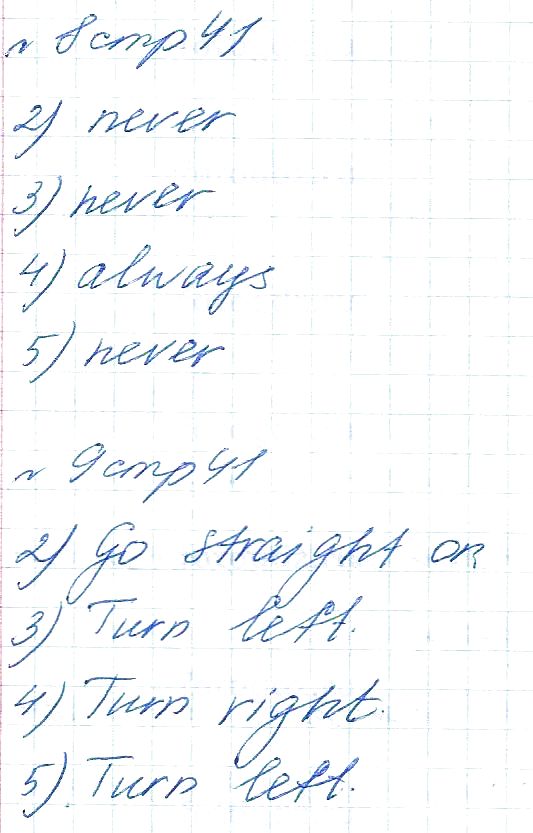 № 8 стр 41
2) never
3) never
4) always
5) never
№ 9 стр 41
2) Go straight on
3) Turn left.
4) Turn right.
5) Turn left.